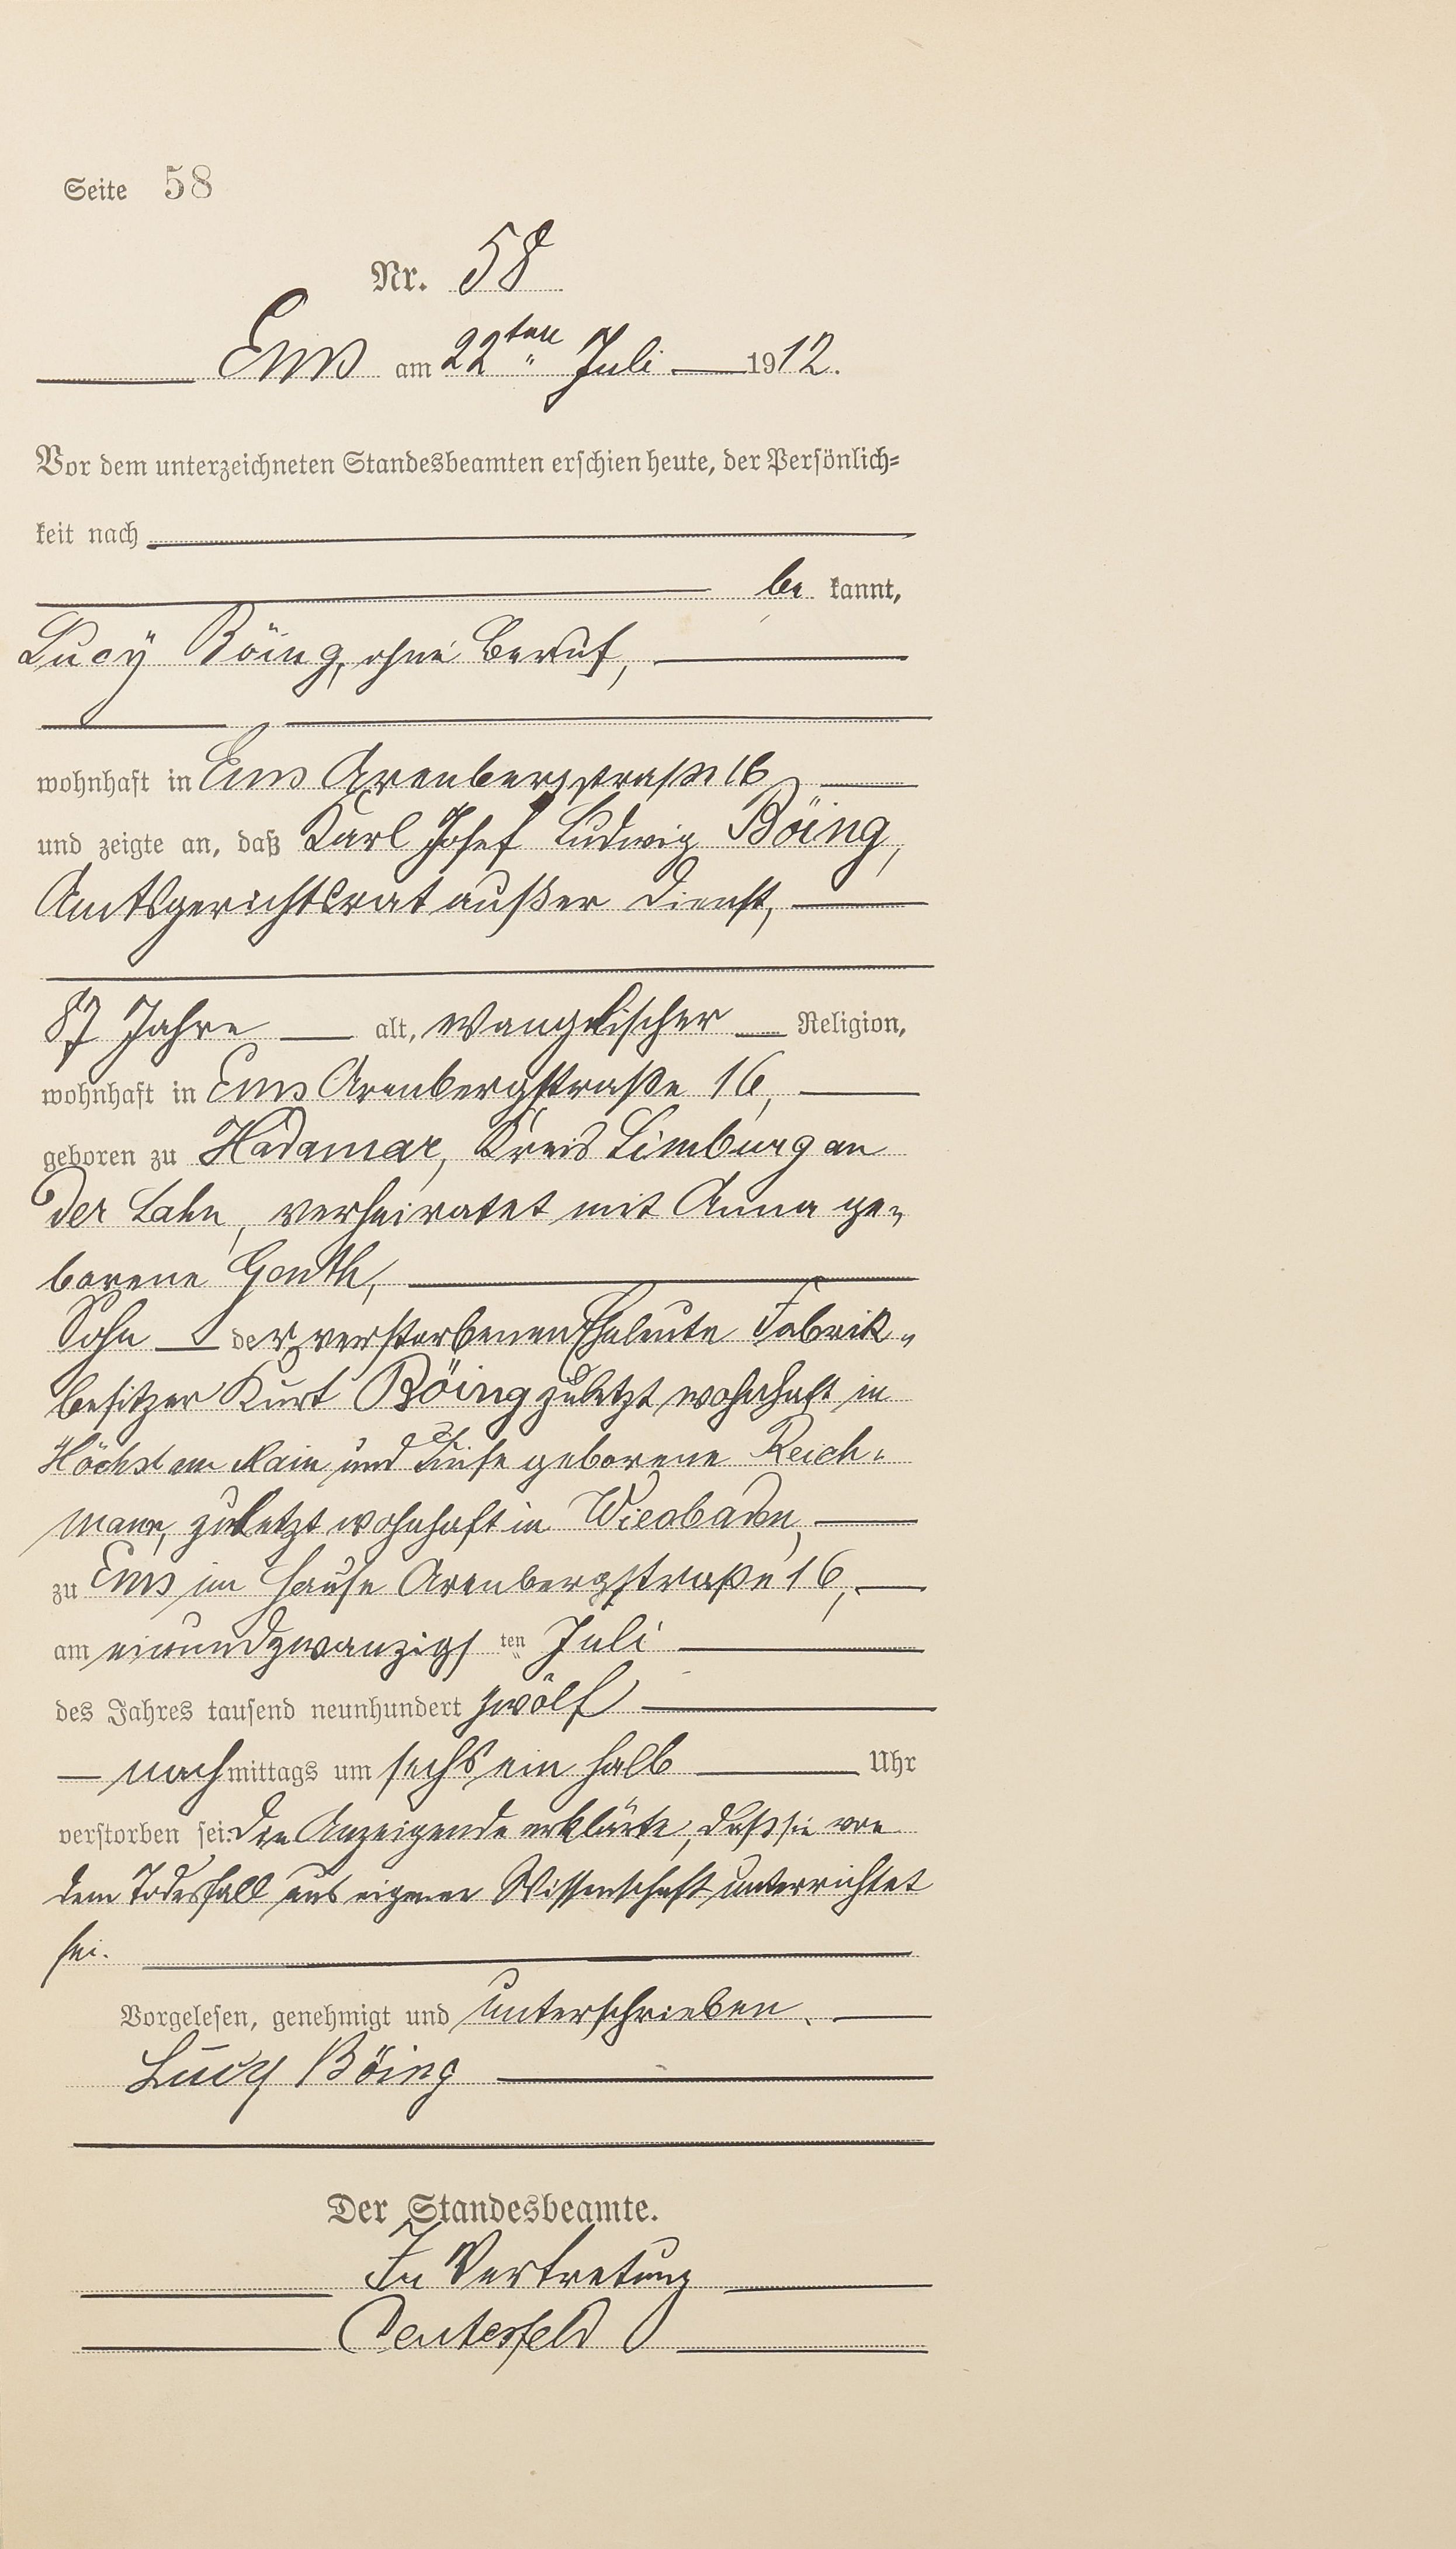 Seite 58
Nr. 58
Ems am 22ten Juli 1912.
Vor dem unterzeichneten Standesbeamten erschien heute, der Persönlich=
keit nach
be kannt,
Lucÿ Böing, ohne Beruf,
wohnhaft in Ems Arenbergstraße 16
und zeigte an, daß Karl Josef Ludwig Böing,
Amtsgerichtsrat außer Dienst,
87 Jahre alt, evangelischer Religion,
wohnhaft in Ems Arenbergstraße 16,
geboren zu Hadamar, Kreis Limburg an
der Lahn, verheiratet mit Anna ge„
borene Genth,
Sohn der verstorbenen Eheleute Fabrik„
besitzer Kurt Böing zuletzt wohnhaft in
Höchst am Main und Luise geborene Reich„
mann, zuletzt wohnhaft in Wiesbaden,
zu Ems im Hause Arenbergstraße 16,
am einundzwanzigs ten Juli
des Jahres tausend neunhundert zwölf
nachmittags um sechs ein halb Uhr
verstorben sei. Die Anzeigende erklärte, daß sie von
dem Todesfall aus eigener Wissenschaft unterrichtet
sei.
Vorgelesen, genehmigt und unterschrieben.
Lucy Böing
Der Standesbeamte.
In Vertretung